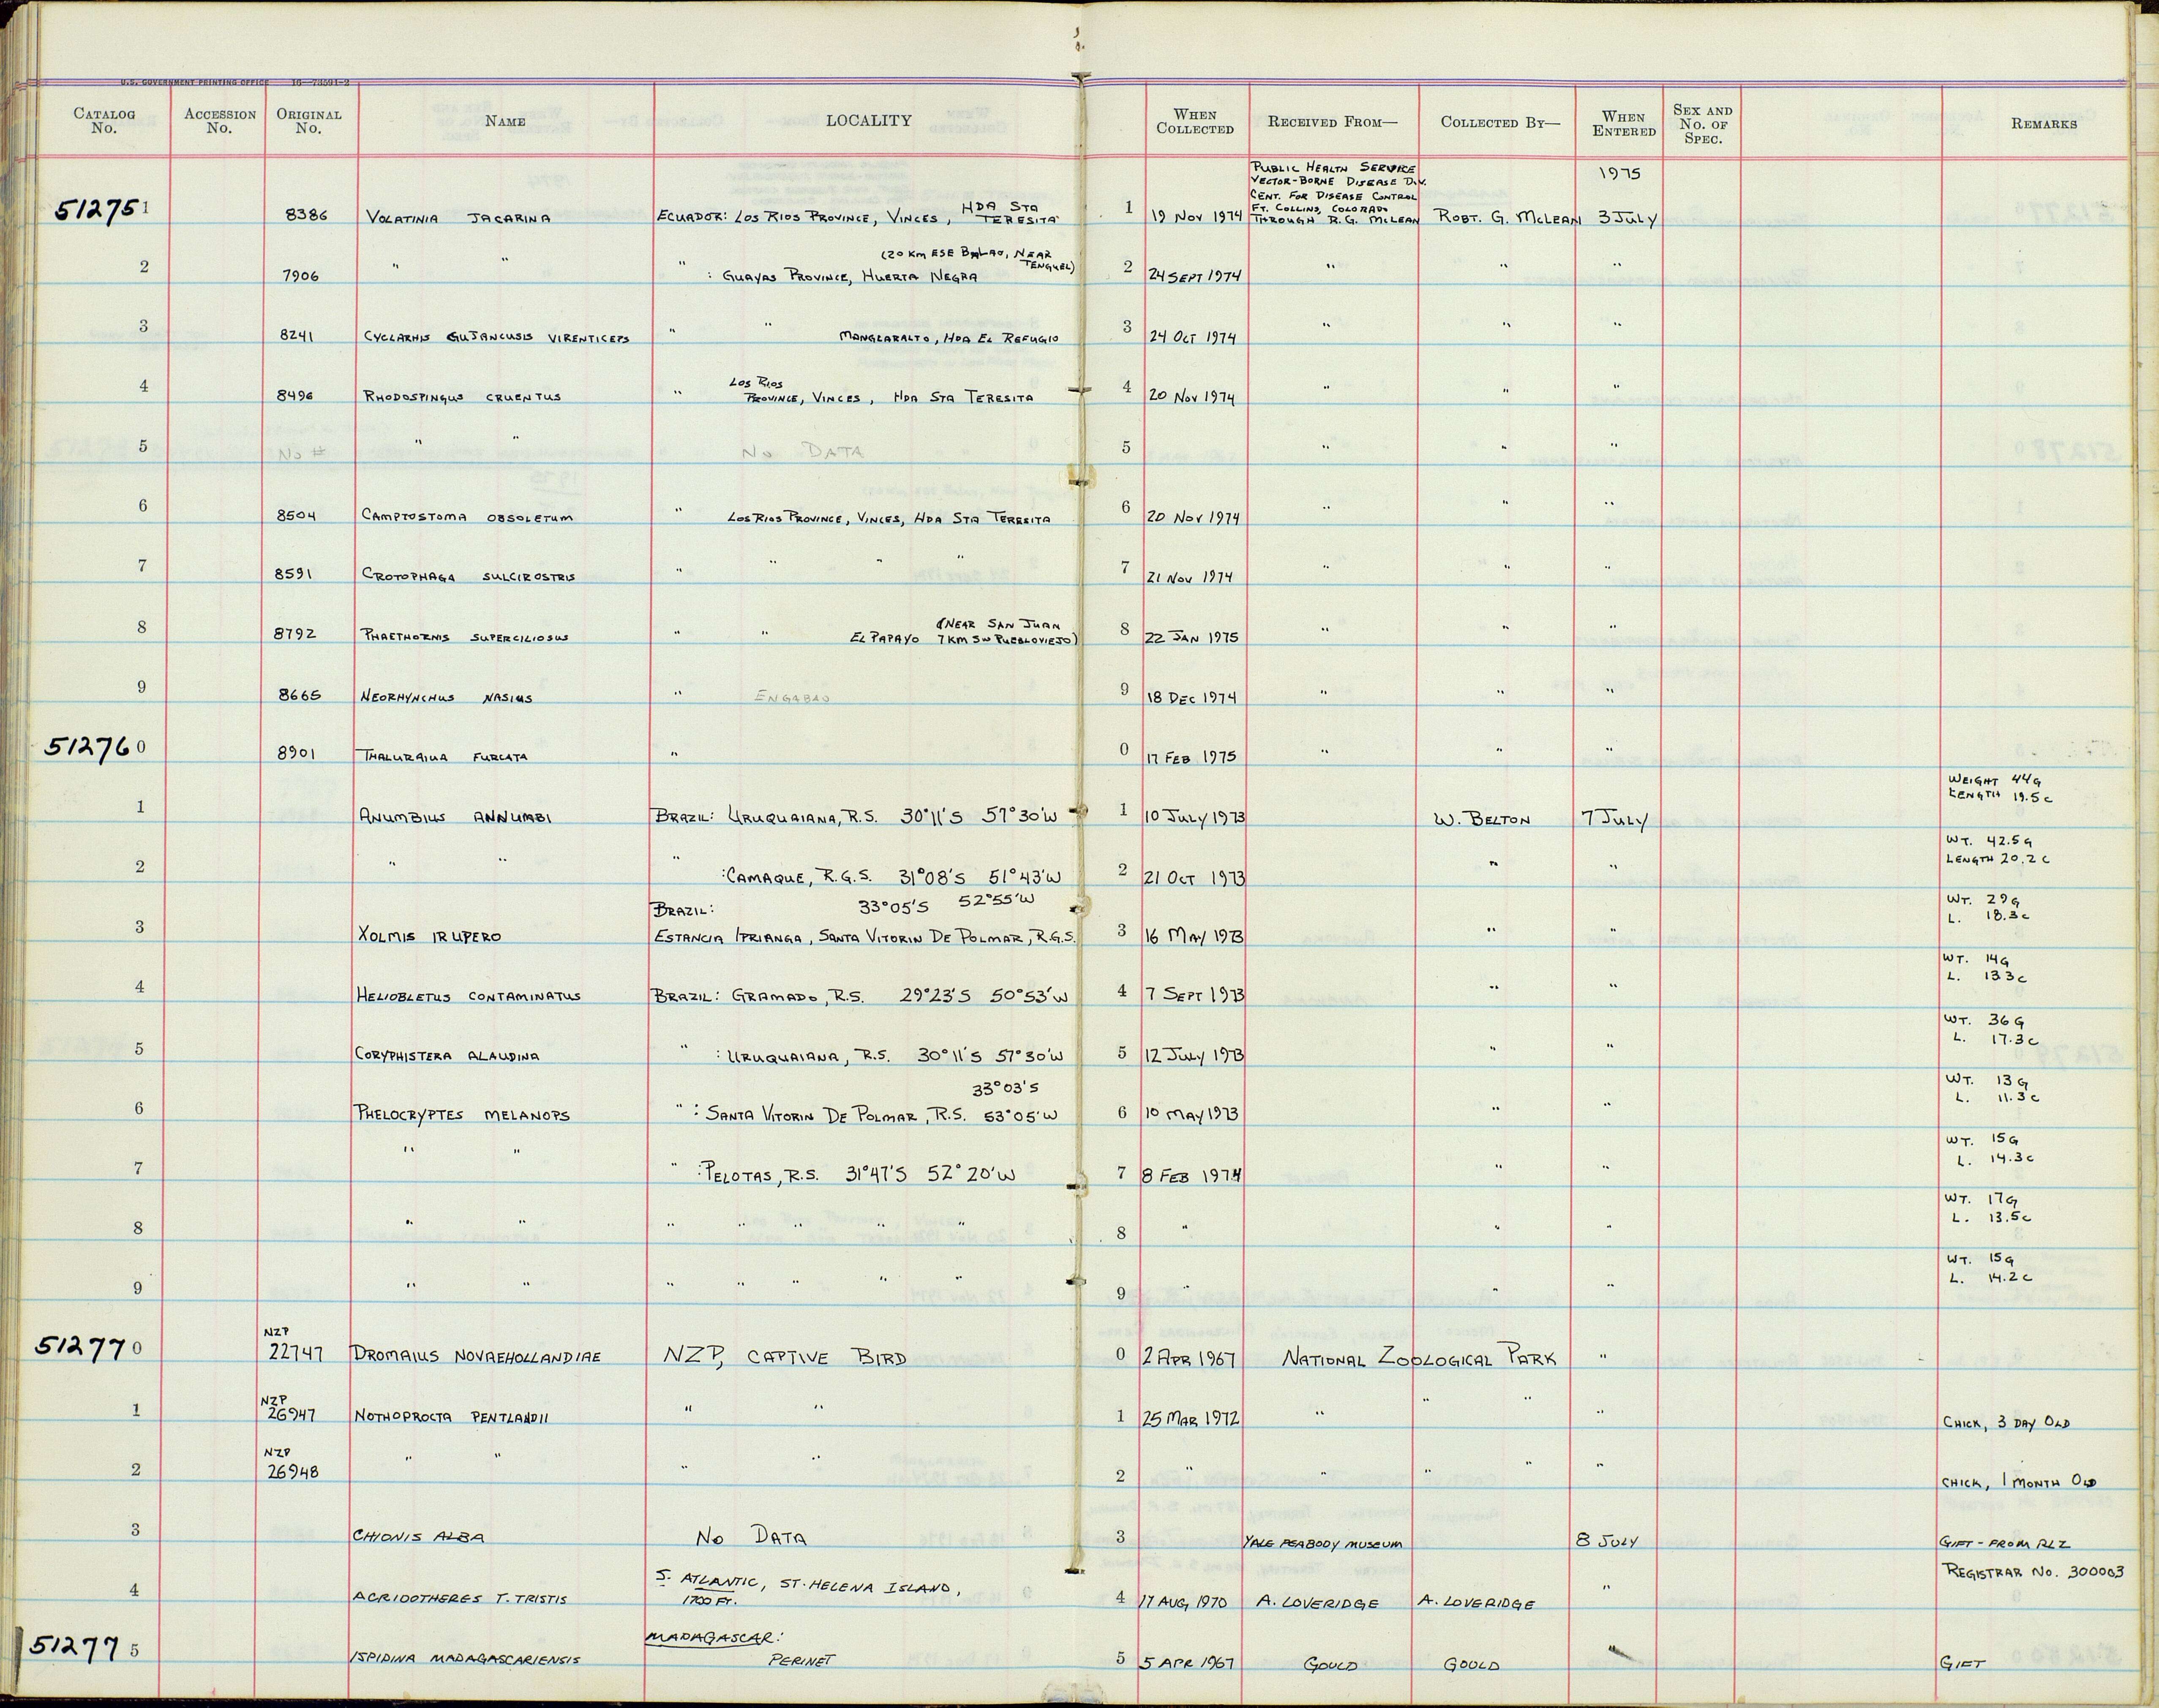 U.S. GOVERNMENT PRINTING OFFICE 16—73591-2
CATALOG No. ACCESSION No. ORIGINAL No. NAME LOCALITY WHEN COLLECTED RECEIVED FROM— COLLECTED BY— WHEN ENTERED SEX AND No. OF SPEC. REMARKS
PUBLIC HEALTH SERVICE
VECTOR-BORNE DISEASE DIV. 1975
CENT. FOR DISEASE CONTROL
HDA STA FT. COLLINS, COLORADO
512751 8386 VOLATINIA JACARINA ECUADOR: LOS RIOS PROVINCE, VINCES, TERESITA 1 19 NOV 1974 THROUGH R.G. MCLEAN ROBT. G. MCLEAN 3 JULY
(20 KM ESE BALAO, NEAR TENGUEL)
2 7906 " " " : GUAYAS PROVINCE, HUERTA NEGRA 2 24 SEPT 1974 " " "
3 8241 CYCLARHIS GUJANCUSIS VIRENTICEPS " " MANGLARALTO, HDA EL REFUGIO 3 24 OCT 1974 " " "
LOS RIOS
4 8496 RHODOSPINGUS CRUENTUS " PROVINCE, VINCES, HDA STA TERESITA 4 20 NOV 1974 " " "
5 No # " " NO DATA 5 " " "
6 8504 CAMPTOSTOMA OBSOLETUM " LOS RIOS PROVINCE, VINCES, HDA STA TERESITA 6 20 NOV 1974 " " "
7 8591 CROTOPHAGA SULCIROSTRIS " " " " 7 21 NOV 1974 " " "
(NEAR SAN JUAN
8 8792 PHAETHORNIS SUPERCILIOSUS " " EL PAPAYO 7 KM SW PUEBLOVIEJO) 8 22 JAN 1975 " " "
9 8665 NEORHYNCHUS NASIUS " ENGABAO 9 18 DEC 1974 " " "
512760 8901 THALURAIUA FURCATA " 0 17 FEB 1975 " " "
WEIGHT 44G
LENGTH 19.5 C
1 ANUMBIUS ANNUMBI BRAZIL: URUQUAIANA, R.S. 30°11'S 57°30'W 1 10 JULY 1973 W. BELTON 7 JULY
WT. 42.5G
LENGTH 20.2 C
2 " " " :CAMAQUE, R.G.S. 31°08'S 51°43'W 2 21 OCT 1973 " "
BRAZIL: 33°05'S 52°55'W WT. 29G
L. 18.3C
3 XOLMIS IRUPERO ESTANCIA IPRIANGA, SANTA VITORIN DE POLMAR, R.G.S. 3 16 MAY 1973 " "
WT. 14G
L. 13.3C
4 HELIOBLETUS CONTAMINATUS BRAZIL: GRAMADO, R.S. 29°23'S 50°53'W 4 7 SEPT 1973 " "
WT. 36G
L. 17.3C
5 CORYPHISTERA ALAUDINA " : URUQUAIANA, R.S. 30°11'S 57°30'W 5 12 JULY 1973 " "
33°03'S WT. 13G
L. 11.3C
6 PHELOCRYPTES MELANOPS " : SANTA VITORIN DE POLMAR, R.S. 53°05'W 6 10 MAY 1973 " "
WT. 15G
L. 14.3C
7 " " " :PELOTAS, R.S. 31°47'S 52°20'W 7 8 FEB 1974 " "
WT. 17G
L. 13.5C
8 " " " " " " " 8 " " "
WT. 15G
L. 14.2C
9 " " " " " " " 9 " " "
NZP
512770 22747 DROMAIUS NOVAEHOLLANDIAE NZP, CAPTIVE BIRD 0 2 APR 1967 NATIONAL ZOOLOGICAL PARK "
NZP
1 26947 NOTHOPROCTA PENTLANDII " " 1 25 MAR 1972 " " " " CHICK, 3 DAY OLD
NZP
2 26948 " " " " 2 " " " " " CHICK, 1 MONTH OLD
3 CHIONIS ALBA NO DATA 3 YALE PEABODY MUSEUM 8 JULY GIFT - FROM RLZ
S. ATLANTIC, ST. HELENA ISLAND, REGISTRAR NO. 300003
4 ACRIDOTHERES T. TRISTIS 1700 FT. 4 17 AUG 1970 A. LOVERIDGE A. LOVERIDGE "
MADAGASCAR:
512775 ISPIDINA MADAGASCARIENSIS PERINET 5 5 APR 1967 GOULD GOULD " GIFT